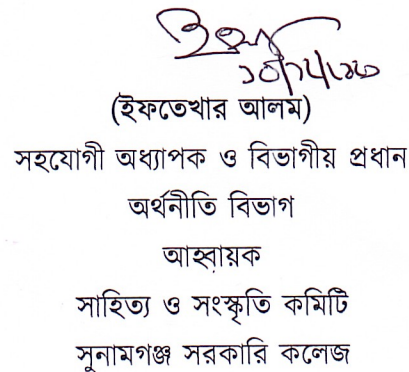 (ইফতেখার আলম)
সহযোগী অধ্যাপক ও বিভাগীয় প্রধান
অর্থনীতি বিভাগ
আহ্বায়ক
সাহিত্য ও সংস্কৃতি কমিটি
সুনামগঞ্জ সরকারি কলেজ